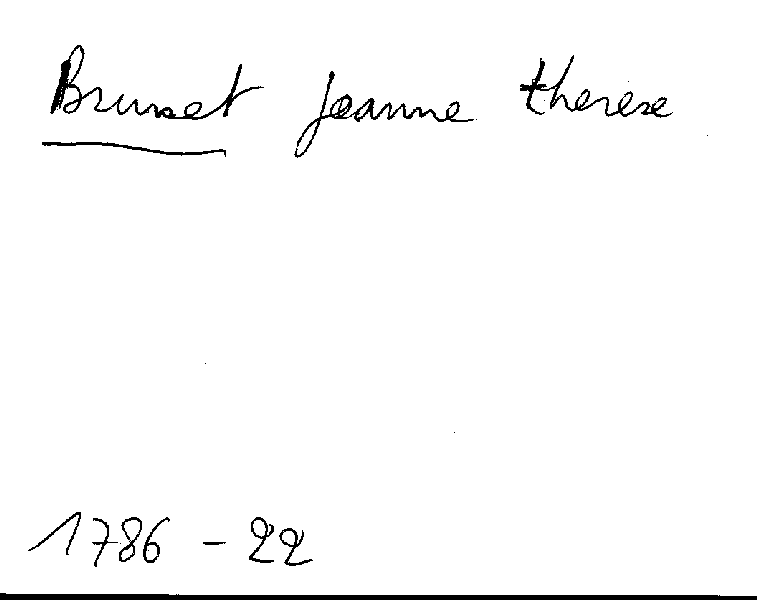 Brunet Jeanne therese
1786 - 22